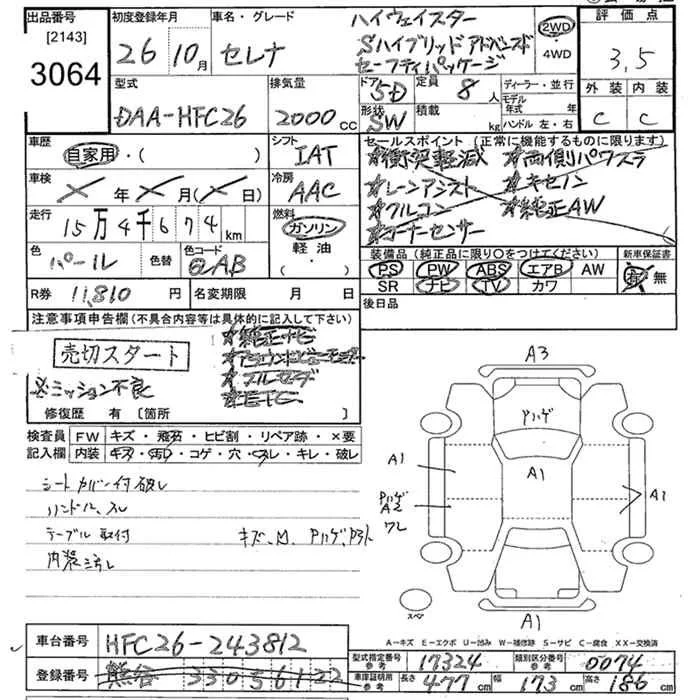 出品番号
[2143]
3064
初度登録年月
26 10月
車名・グレード
セレナ
ハイウェイスター
Sハイブリッド アドバンスド
セーフティパッケージ
2WD
4WD
評価点
3,5
外装 内装
C C
型式
DAA-HFC26
排気量
2000 cc
ドア 5D
定員 8 人
形状 SW
積載 kg
ディーラー・並行
モデル年式 年
ハンドル 左・右
車歴
自家用・( )
シフト
IAT
車検
年 月( 日)
冷房
AAC
走行
15万4千674km
燃料
ガソリン
軽油
( )
色
パール
色替
色コード
QAB
R券 11,810 円
名変期限 月 日
セールスポイント(正常に機能するものに限ります)
☆衝突軽減 ☆両側パワスラ
☆レーンアシスト ☆キセノン
☆フルコン ☆純正AW
☆コーナーセンサー
装備品(純正品に限り○をつけてください)
PS PW ABS エアB AW
SR ナビ TV カワ
新車保証書
有 無
後日品
注意事項申告欄(不具合内容等は具体的に記入して下さい)
売切スタート
※ミッション不良
☆純正ナビ
☆アラウンドビューモニター
☆フルセグ
☆ETC
修復歴 有 [箇所 ]
検査員
記入欄
FW キズ・飛石・ヒビ割・リペア跡・×要
内装 キズ・汚レ・コゲ・穴・スレ・キレ・破レ
シートカバー付 破レ
ハンドル スレ
テーブル取付 キズ、M、Pハゲ、
内装汚レ
A3
Pハゲ
A1
A1
Pハゲ
A2
ワレ
A1
スペア
A1
A-キズ E-エクボ U-凹み W-補修跡 S-サビ C-腐食 XX-交換済
車台番号 HFC26-243812
登録番号 熊谷 330 56122
型式指定番号 参考 17324
類別区分番号 参考 0074
車庫証明用 参考 長さ 477cm 幅 173cm 高さ 186cm